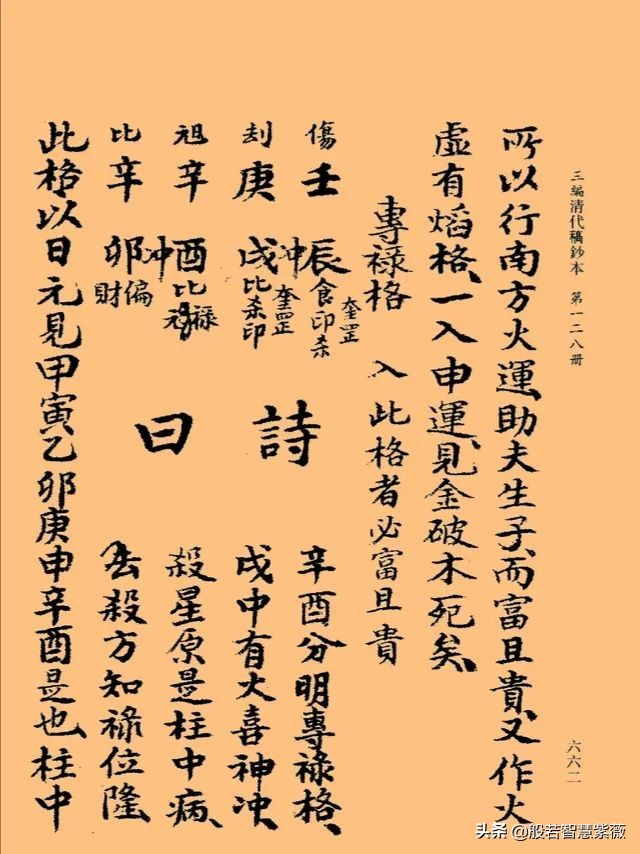 三編清代稿鈔本 第一二八册
六六二
所以行南方火運、助夫生子、而富且貴、又作火
虛有熖格、一入申運、見金破木死矣、
專祿格 入此格者必富且貴
傷 壬 辰 食印杀 奎罡
刦 庚 戌 冲 比杀印 奎罡
祖 辛 酉 比禄
比 辛 卯 冲 偏財
詩曰
辛酉分明專祿格、
戌中有火喜神冲、
殺星原是柱中病、
去殺方知祿位隆、
此格以日元見甲寅乙卯庚申辛酉是也、柱中
头条 @般若智慧紫薇